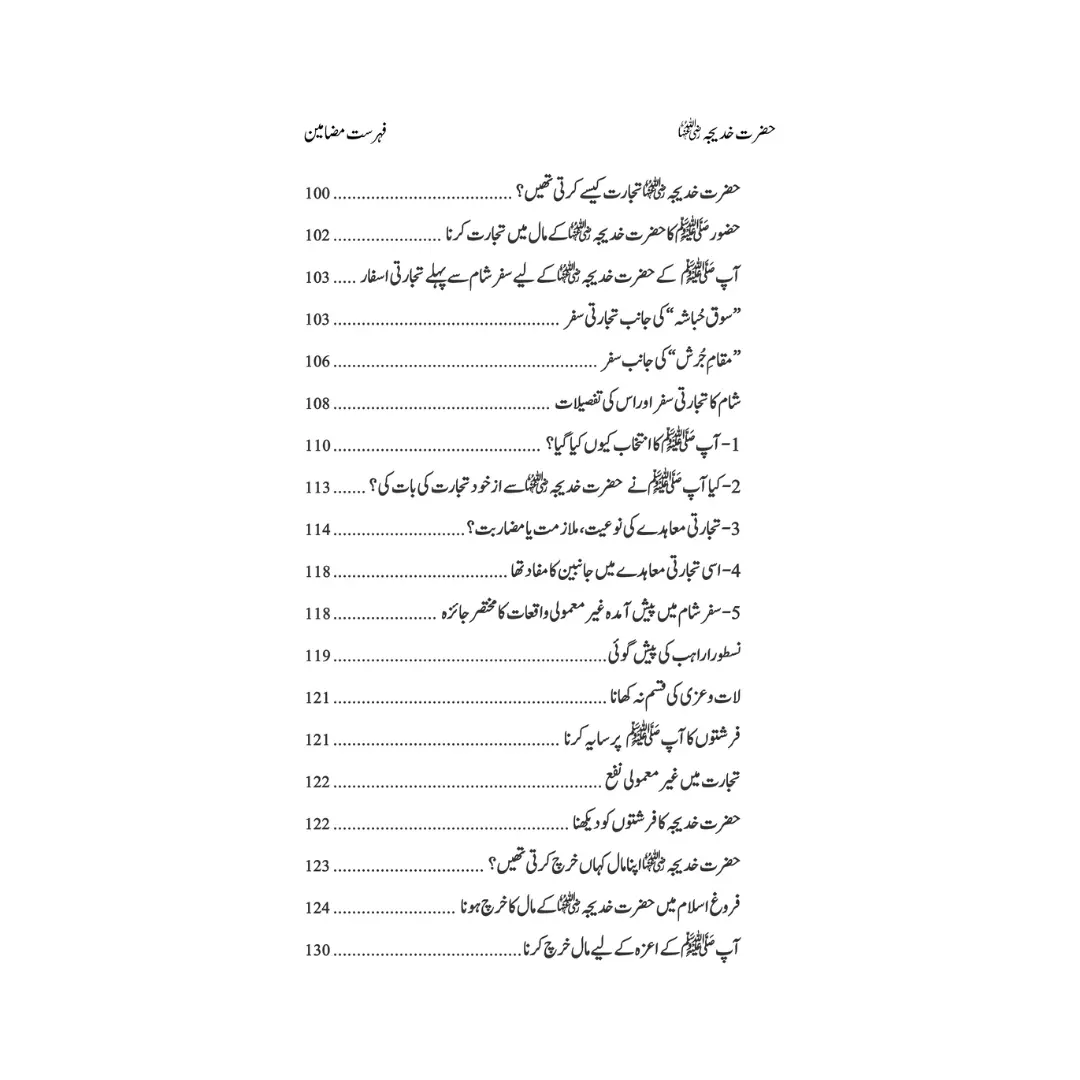 حضرت خدیجہ رضی اللہ عنہا فہرست مضامین
حضرت خدیجہ رضی اللہ عنہا تجارت کیسے کرتی تھیں؟ ...................................... 100
حضور ﷺ کا حضرت خدیجہ رضی اللہ عنہا کے مال میں تجارت کرنا ....................... 102
آپ ﷺ کے حضرت خدیجہ رضی اللہ عنہا کے لیے سفر شام سے پہلے تجارتی اسفار ..... 103
”سوق حُباشہ“ کی جانب تجارتی سفر ................................................ 103
”مقامِ جُرش“ کی جانب سفر ........................................................ 106
شام کا تجارتی سفر اور اس کی تفصیلات .............................................. 108
1- آپ ﷺ کا انتخاب کیوں کیا گیا؟ ............................................ 110
2- کیا آپ ﷺ نے حضرت خدیجہ رضی اللہ عنہا سے از خود تجارت کی بات کی؟ ....... 113
3- تجارتی معاہدے کی نوعیت، ملازمت یا مضاربت؟ ............................ 114
4- اسی تجارتی معاہدے میں جانبین کا مفاد تھا ..................................... 118
5- سفر شام میں پیش آمدہ غیر معمولی واقعات کا مختصر جائزہ ...................... 118
نسطورا راہب کی پیش گوئی .......................................................... 119
لات و عزی کی قسم نہ کھانا .......................................................... 121
فرشتوں کا آپ ﷺ پر سایہ کرنا ................................................ 121
تجارت میں غیر معمولی نفع ......................................................... 122
حضرت خدیجہ کا فرشتوں کو دیکھنا .................................................. 122
حضرت خدیجہ رضی اللہ عنہا اپنا مال کہاں خرچ کرتی تھیں؟ ................................ 123
فروغ اسلام میں حضرت خدیجہ رضی اللہ عنہا کے مال کا خرچ ہونا .......................... 124
آپ ﷺ کے اعزہ کے لیے مال خرچ کرنا ........................................ 130